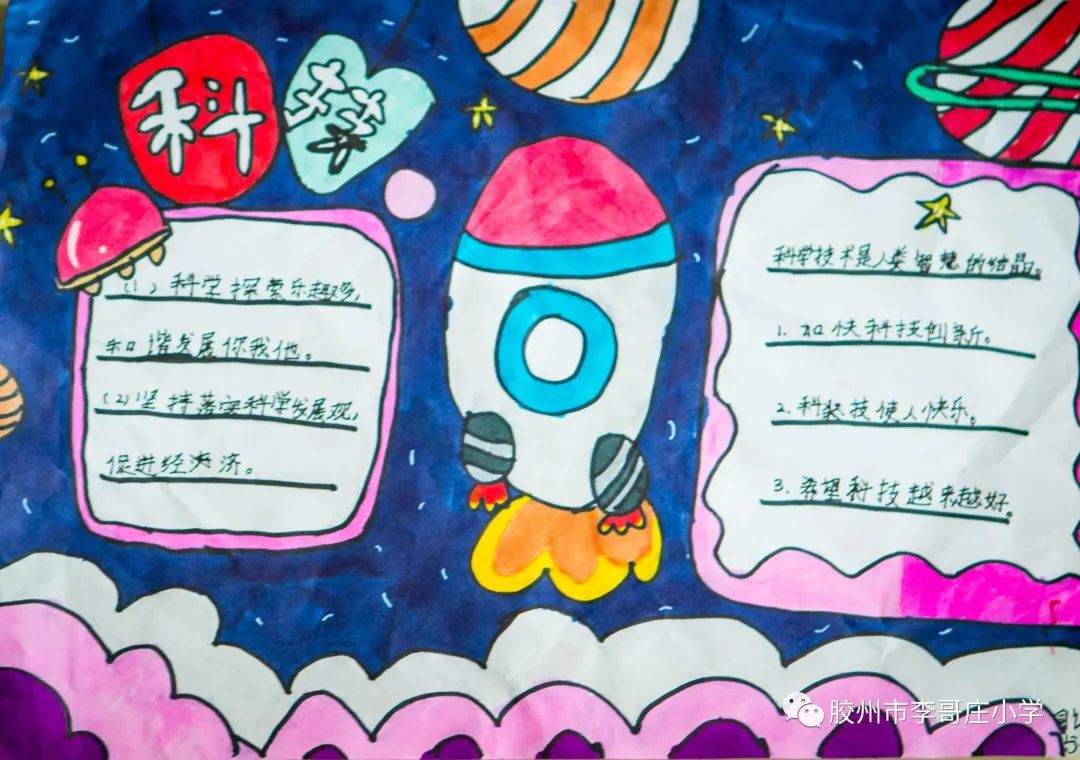 科技
(1)科学探索乐趣多,
和谐发展你我他。
(2)坚持落实科学发展观,
促进经济。
科学技术是人类智慧的结晶。
1.加快科技创新。
2.科技使人快乐。
3.希望科技越来越好。
胶州市李哥庄小学